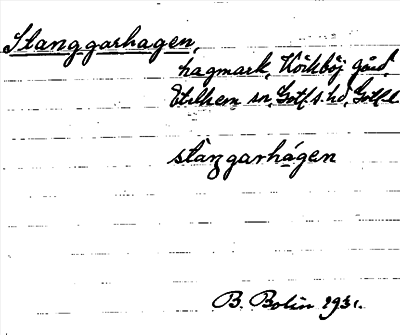 Stanggarhagen,
hagmark, Körkböj gård,
Etelhem sn, Gotl. s. hd, Gotl. l.
stàngarhágen
B. Bolin 1931.